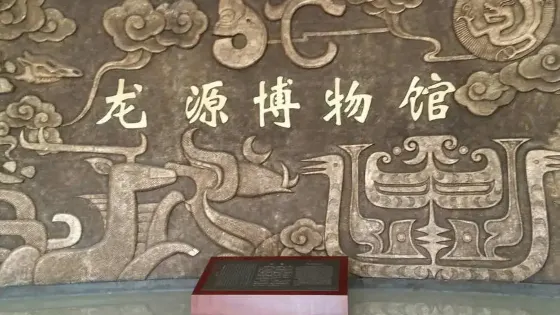 龙源博物馆